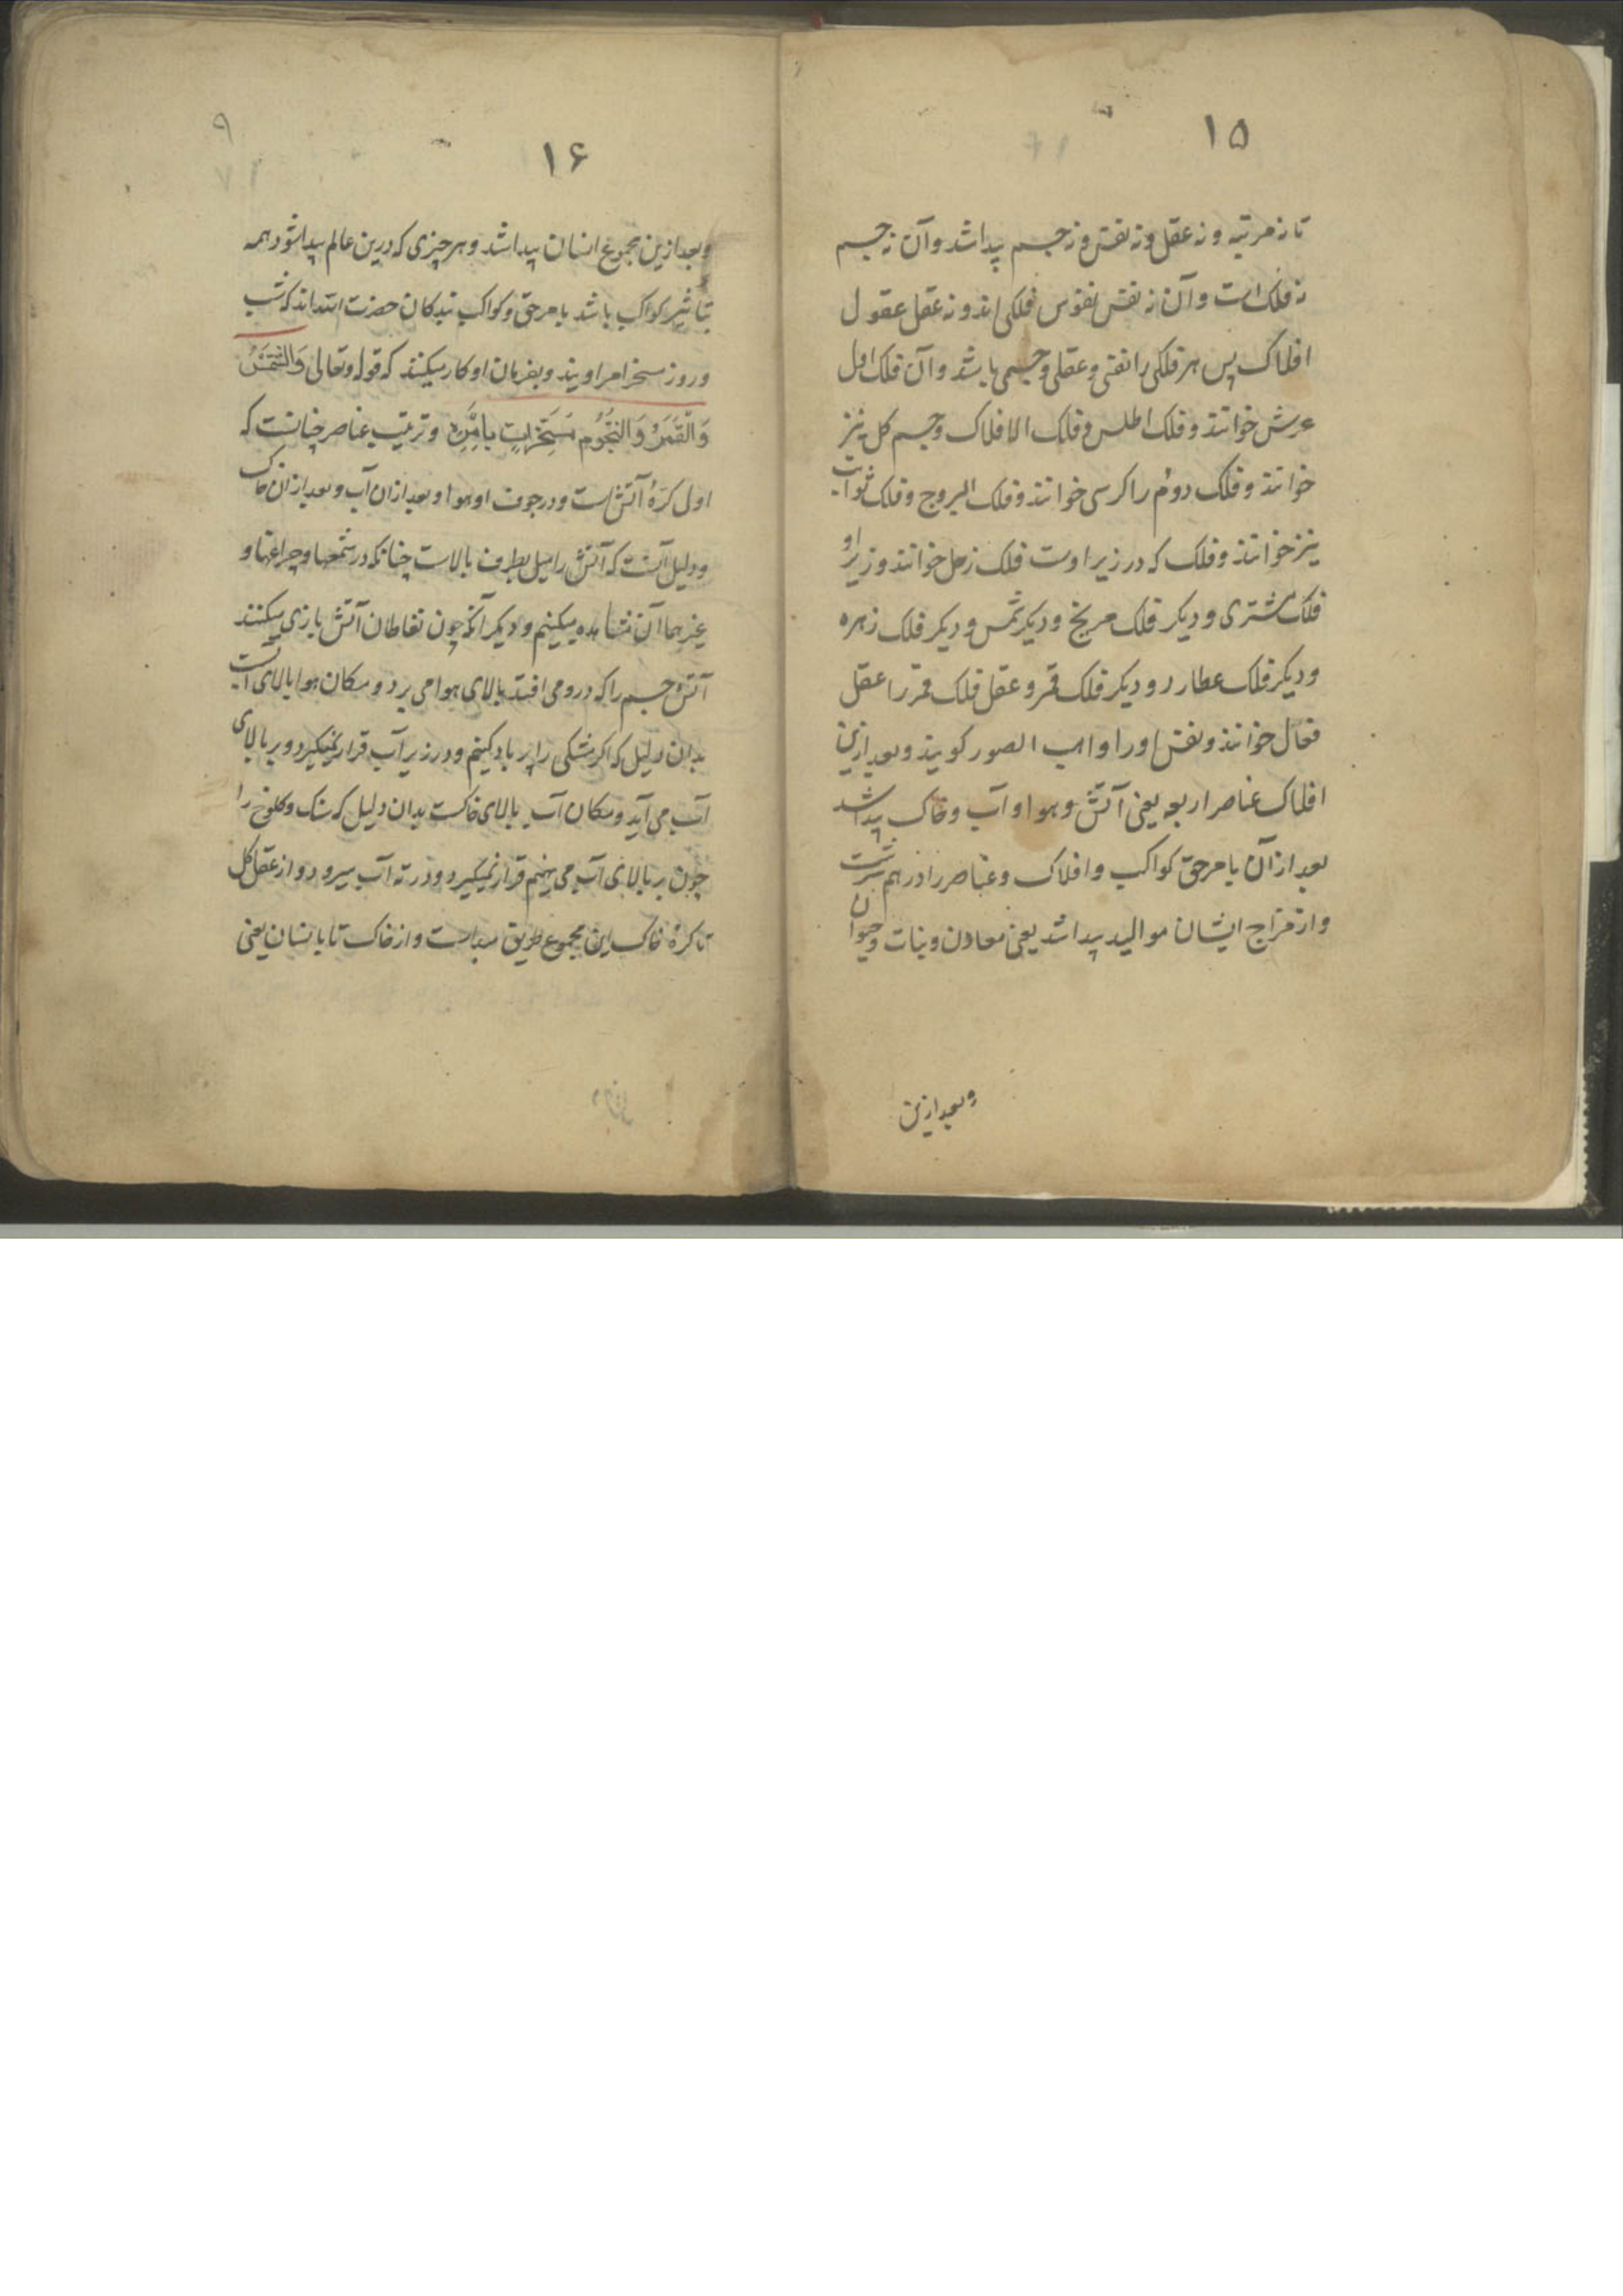 ۱۵
تا نه مرتبه و نه عقل و نه نفس و نه جسم پیدا شد و آن نه جسم
نه فلک است و آن نه نفس نفوس فلکی اند و نه عقل عقول
افلاک پس هر فلکی را نفسی و عقلی و جسمی باشد و آن فلک اول
عرش خوانند و فلک اطلس و فلک الافلاک و جسم کل نیز
خوانند و فلک دوم را کرسی خوانند و فلک البروج و فلک ثوابت
نیز خوانند و فلک که در زیر اوست فلک زحل خوانند و زیر او
فلک مشتری و دیکر فلک مریخ و دیکر شمس و دیکر فلک زهره
و دیکر فلک عطارد و دیکر فلک قمر و عقل فلک قمر را عقل
فعال خوانند و نفس او را واهب الصور کویند و بعد ازین
افلاک عناصر اربعه یعنی آتش و هوا و آب و خاک پیدا شد
بعد از آن بامر حق کواکب و افلاک و عناصر را در هم سرشت
و از مزاج ایشان موالید پیدا شد یعنی معادن و نبات و حیوان
و بعد ازین
۹
۱۶
و بعد ازین مجموع انسان پیدا شد و هر چیزی که درین عالم پیدا شود همه
بتاثیر کواکب باشد بامر حق و کواکب بندکان حضرت اند که شب
و روز مسخر امر اویند و بفرمان او کار میکنند که قوله وتعالی وَالشَّمْسُ
وَالْقَمَرُ وَالنُّجُومُ مُسَخَّرَاتٍ بِأَمْرِهِ و ترتیب عناصر چنانست که
اول کرهٔ آتش است و در جوف او هوا و بعد از ان آب و بعد از ان خاک
و دلیل آنست که آتش را میل بطرف بالاست چنانکه در شمعها و چراغها و
غیرهما آن مشاهده میکنیم و دیکر آنکه چون نفاطان آتش بازی میکنند
آتش جسم را که درو می افتد بالای هوا می برد و مکان هوا بالای آبست
بدان دلیل که اکر مشکی را پر باد کنیم و در زیر آب قرار نمیکیرد و بر بالای
آب می آید و مکان آب بالای خاکست بدان دلیل که سنک و کلوخ را
چون بر بالای آب می نهیم قرار نمیکیرد و در ته آب میرود و از عقل کل
تا کرهٔ خاک این مجموع طریق مبداست و از خاک تا بانسان یعنی